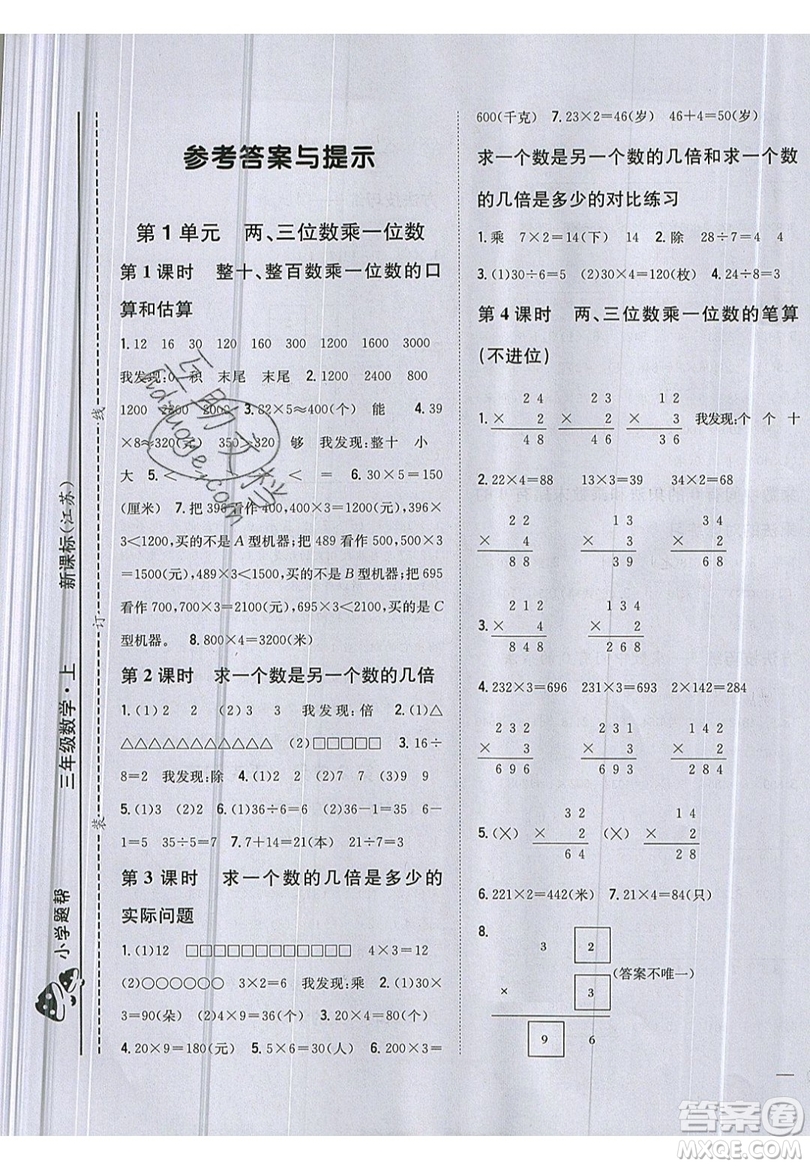 参考答案与提示
第1单元 两、三位数乘一位数
第1课时 整十、整百数乘一位数的口
算和估算
1.12 16 30 120 160 300 1200 1600 3000
我发现:0 积 末尾 末尾 2.1200 2400 800
1200 2800 2000 3.82×5≈400(个) 能 4.39
×8≈320(元) 350>320 够 我发现:整十 小
大 5.< < < < 6.30×5=150
(厘米) 7.把396看作400,400×3=1200(元),396
×3<1200,买的不是A型机器;把489看作500,500×3
=1500(元),489×3<1500,买的不是B型机器;把695
看作700,700×3=2100(元),695×3<2100,买的是C
型机器。 8.800×4=3200(米)
第2课时 求一个数是另一个数的几倍
1.(1)2 2 (2)3 3 我发现:倍 2.(1)△
△△△△△△△△△△△ (2)□□□□□ 3.16÷
8=2 我发现:除 4.(1)2 (2)7 (3)9 9
5.(1)2 6.(1)36÷6=6 (2)36-1=35 6-
1=5 35÷5=7 7.7+14=21(本) 21÷7=3
第3课时 求一个数的几倍是多少的
实际问题
1.(1)12 □□□□□□□□□□□□ 4×3=12
(2)6 ○○○○○○ 3×2=6 我发现:乘 2.30×
3=90(朵) (1)9 (2)9 3.20×4=80(个)
4.20×9=180(元) 5.5×6=30(人) 6.200×3=
600(千克) 7.23×2=46(岁) 46+4=50(岁)
求一个数是另一个数的几倍和求一个数
的几倍是多少的对比练习
1.乘 7×2=14(下) 14 2.除 28÷7=4 4
3.(1)30÷6=5 (2)30×4=120(枚) 4.24÷8=3
第4课时 两、三位数乘一位数的笔算
(不进位)
2 4 2 3 1 2
1. × 2 × 2 × 3 我发现:个 个 十
4 8 4 6 3 6
2.22×4=88 13×3=39 34×2=68
2 2 1 3 3 4
× 4 × 3 × 2
8 8 3 9 6 8
2 1 2 1 4 2
3. × 4 × 2
8 4 8 2 8 4
4.232×3=696 231×3=693 2×142=284
2 3 2 2 3 1 1 4 2
× 3 × 3 × 2
6 9 6 6 9 3 2 8 4
3 2 2 3 1
5.(×) × 2 (×) × 3
6 4 6 9 3
6.221×2=442(米) 7.21×4=84(只)
8.
3 2
(答案不唯一)
× 3
9 6
三年级数学·上 新课标(江苏)
小学题帮
装 订 线
答案圈
MXQE.COM